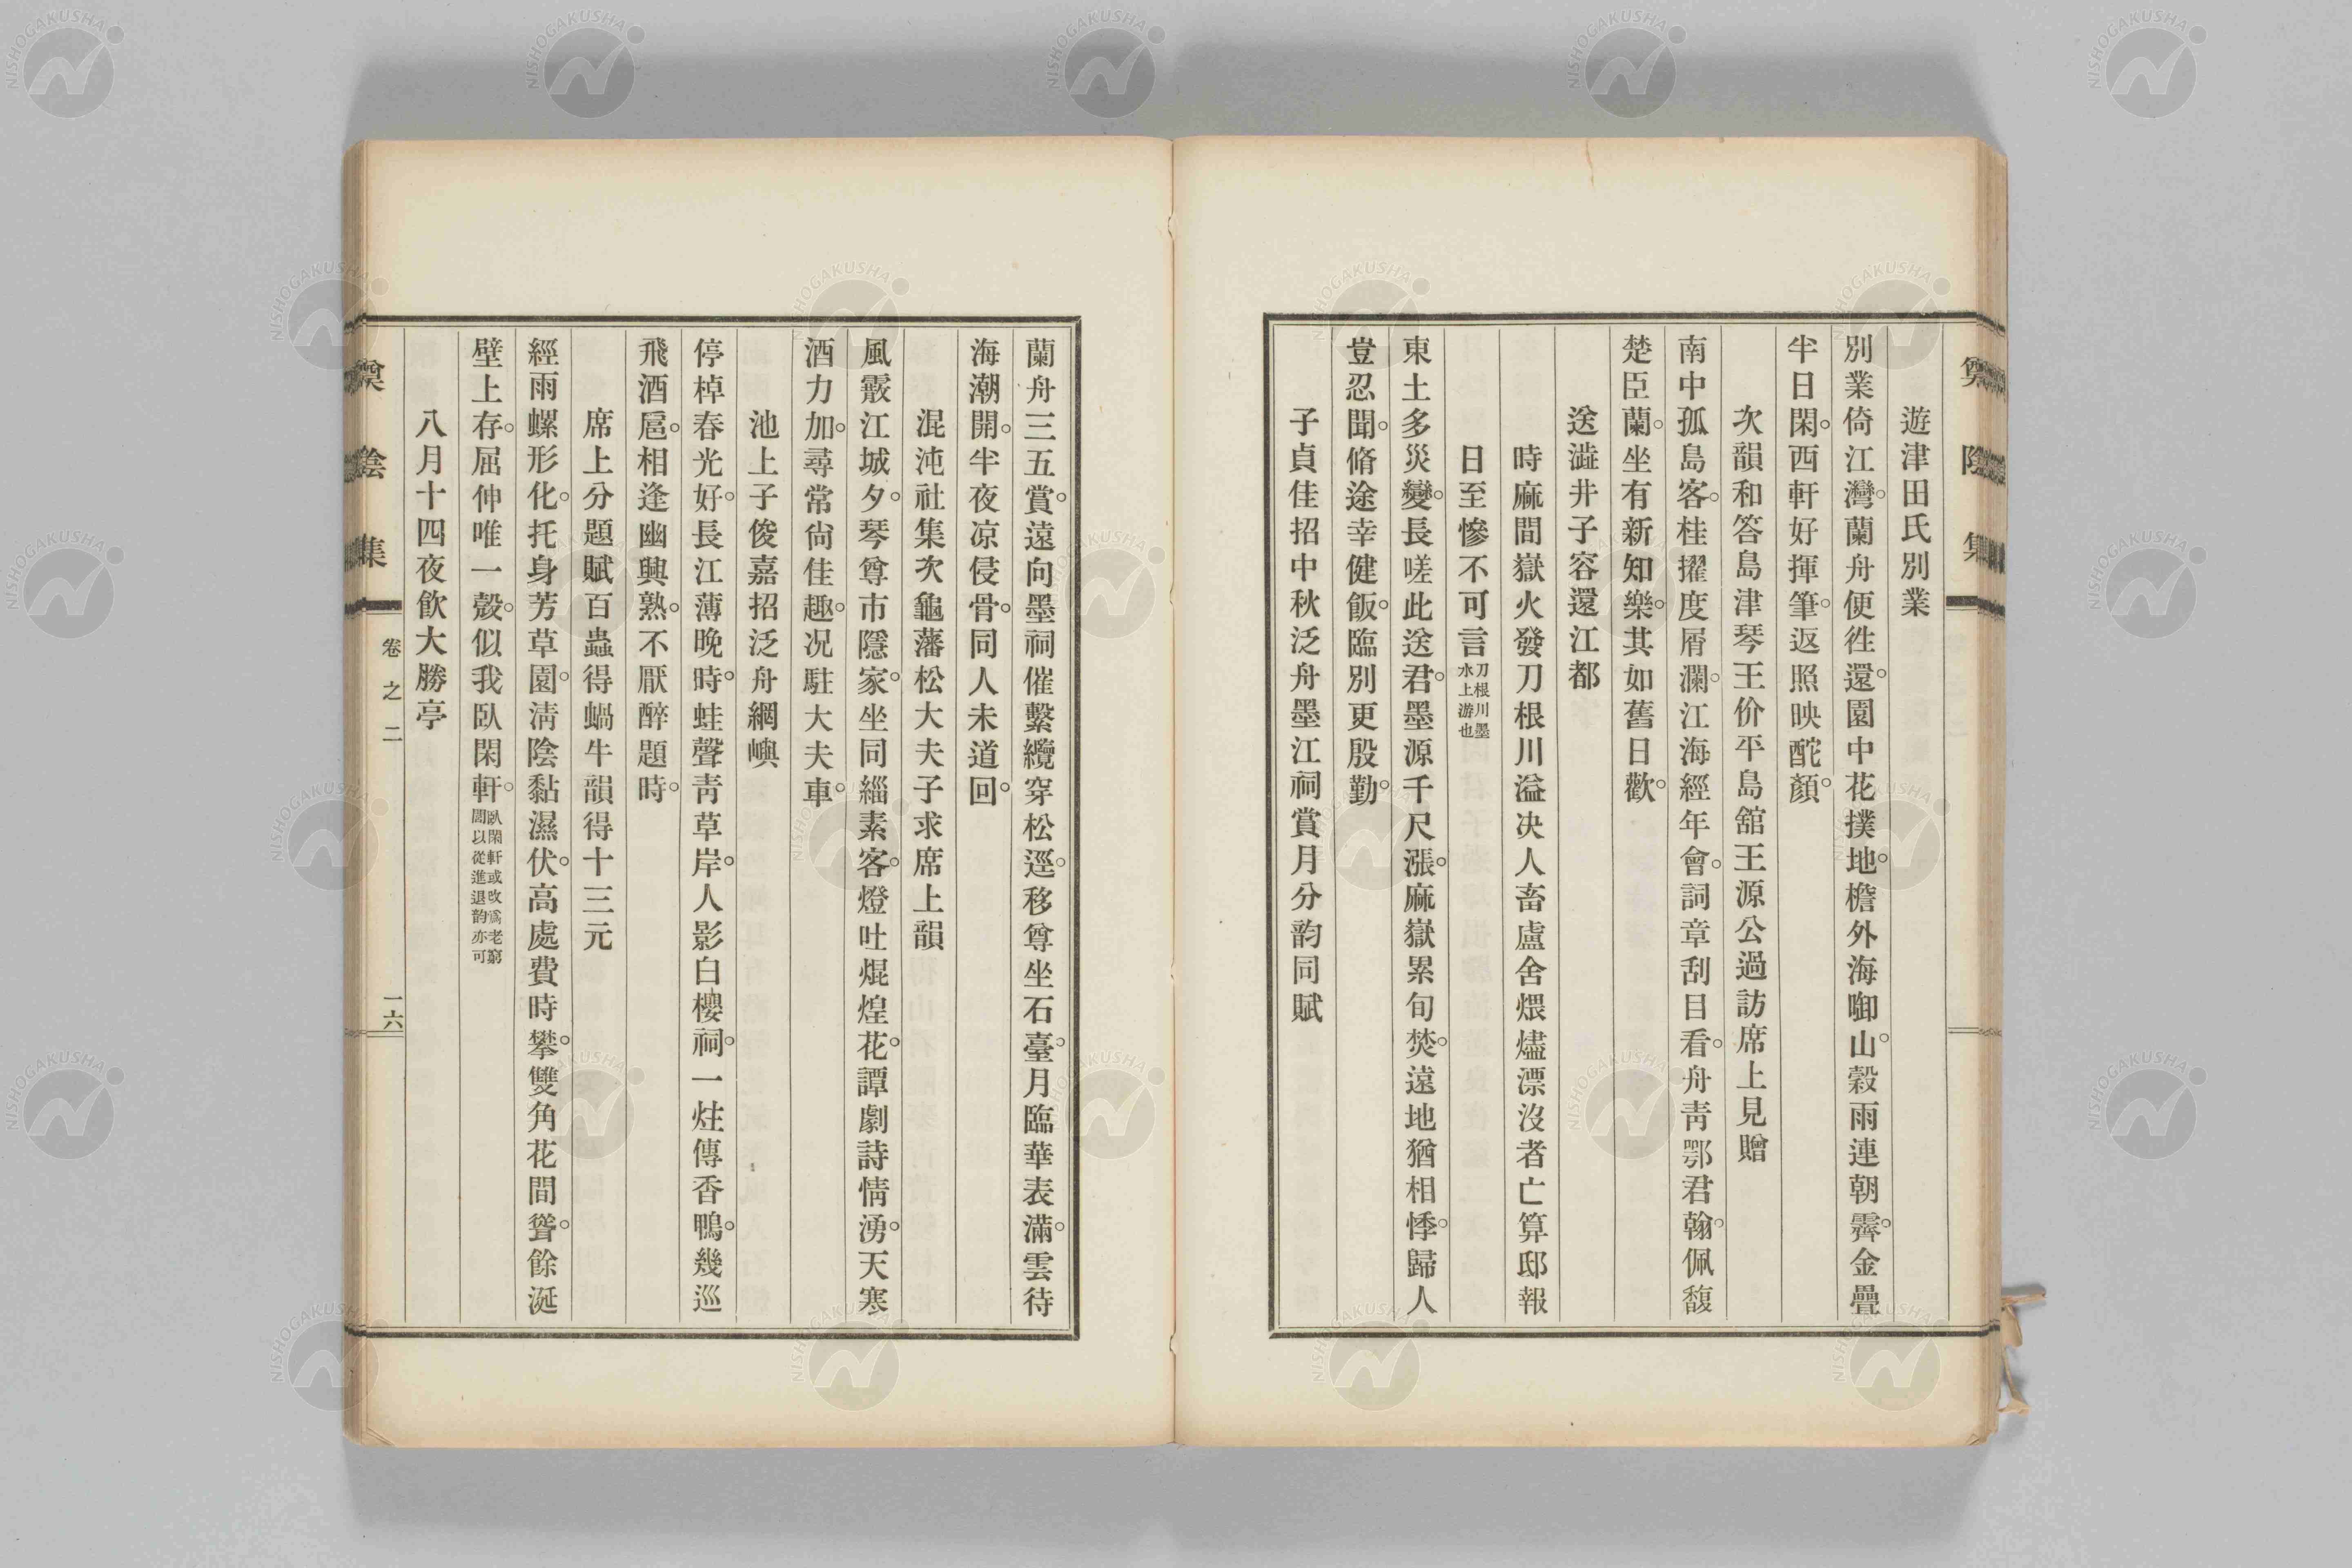 遊津田氏別業
別業倚江灣。蘭舟便徃還。園中花撲地。檐外海啣山。穀雨連朝霽。金疊
半日閑。西軒好揮筆。返照映酡顏。
次韻和答島津琴王价平島舘王源公過訪席上見贈
南中孤島客。桂擢度屑瀾。江海經年會。詞章刮目看。舟靑鄂君翰。佩馥
楚臣蘭。坐有新知樂。其如舊日歡。
送澁井子容還江都
時麻間嶽火發刀根川溢决人畜盧舍煨燼漂沒者亡算邸報
日至慘不可言刀根川墨水上游也
東土多災變。長嗟此送君。墨源千尺漲。麻嶽累旬焚。遠地猶相悸。歸人
豈忍聞。脩途幸健飯。臨別更殷勤。
子貞佳招中秋泛舟墨江祠賞月分韵同賦
蘭舟三五賞。遠向墨祠催。繫纜穿松逕。移尊坐石臺。月臨華表滿。雲待
海潮開。半夜凉侵骨。同人未道回。
混沌社集次龜藩松大夫子求席上韻
風霰江城夕。琴尊市隱家。坐同緇素客。燈吐焜煌花。譚劇詩情湧。天寒
酒力加。尋常尙佳趣。况駐大夫車。
池上子俊嘉招泛舟網嶼
停棹春光好。長江薄晚時。蛙聲靑草岸。人影白櫻祠。一炷傳香鴨。幾巡
飛酒巵。相逢幽興熟。不厭醉題時。
席上分題賦百蟲得蝸牛韻得十三元
經雨螺形化。托身芳草園。淸陰黏濕伏。高處費時攀。雙角花間聳。餘涎
壁上存。屈伸唯一殼。似我臥閑軒。臥閑軒或改爲老窮閻以從進退韵亦可
八月十四夜飮大勝亭
卷之二
一六
NISHOGAKUSHA